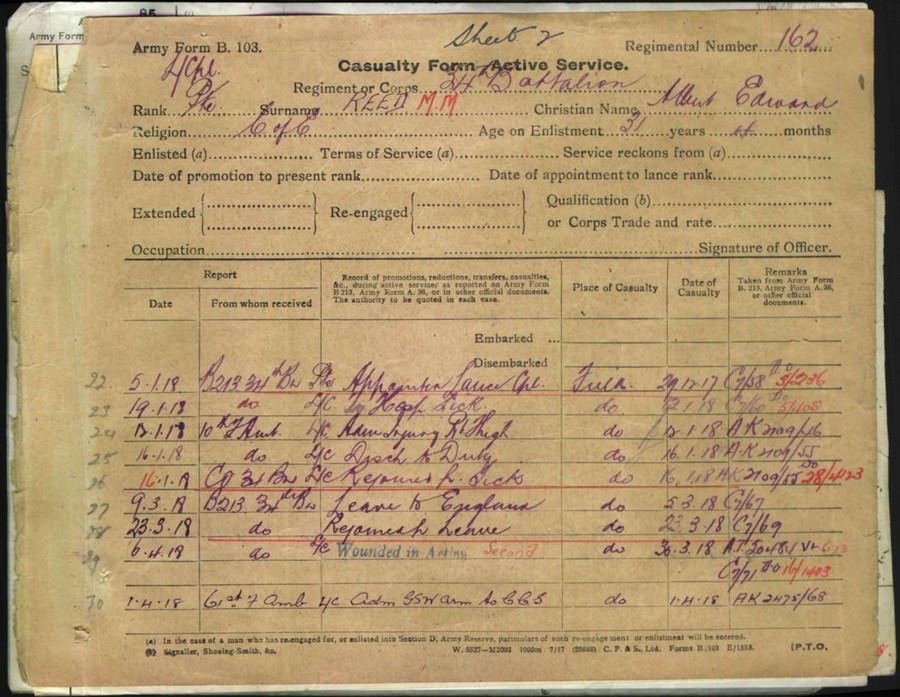 85
Army Form
Sheet 2
Army Form B. 103.
Regimental Number 162
Casualty Form—Active Service.
L/Cpl.
Regiment or Corps 34th Battalion
Rank Pte Surname REED M.M Christian Name Albert Edward
Religion C of E Age on Enlistment 31 years months
Enlisted (a) Terms of Service (a) Service reckons from (a)
Date of promotion to present rank Date of appointment to lance rank
Extended Re-engaged Qualification (b)
or Corps Trade and rate
Occupation Signature of Officer.
Report Record of promotions, reductions, transfers, casualties, &c., during active service, as reported on Army Form B 213, Army Form A. 36, or in other official documents. The authority to be quoted in each case. Place of Casualty Date of Casualty Remarks Taken from Army Form B. 213, Army Form A. 36, or other official documents.
Date From whom received
Embarked ...
Disembarked
22 5.1.18 B213 34th Bn Pte Appointed Lance Cpl. Field 29.12.17 C7/58
23 19.1.18 do L/C Hosp Sick do 12.1.18 C7/60
24 12.1.18 10th F Amb. L/C Adm Injury Rt Thigh do 12.1.18 AK2109/26
25 16.1.18 do L/C Disch to Duty do 16.1.18 AK2109/55
26 16.1.18 CO 34 Bn L/C Rejoined fr. Sick do 16.1.18 AK2109/55
27 9.3.18 B213 34th Bn Leave to England do 5.3.18 C7/67
28 23.3.18 do Rejoined fr Leave do 23.3.18 C7/69
29 6.4.18 do L/C Wounded in Action Second do 30.3.18
C7/71 DO 16/1403
30 1.4.18 61st F Amb L/C Adm GSW Arm to CCS do 1.4.18 AK2475/68
(a) In the case of a man who has re-engaged for, or enlisted into Section D, Army Reserve, particulars of such re-engagement or enlistment will be entered.
(b) Signaller, Shoeing-Smith, &c. W. 5527—M2093 1000m 7/17 (25688) C. P. & S., Ltd. Forms B./103 E/1838. [P.T.O.